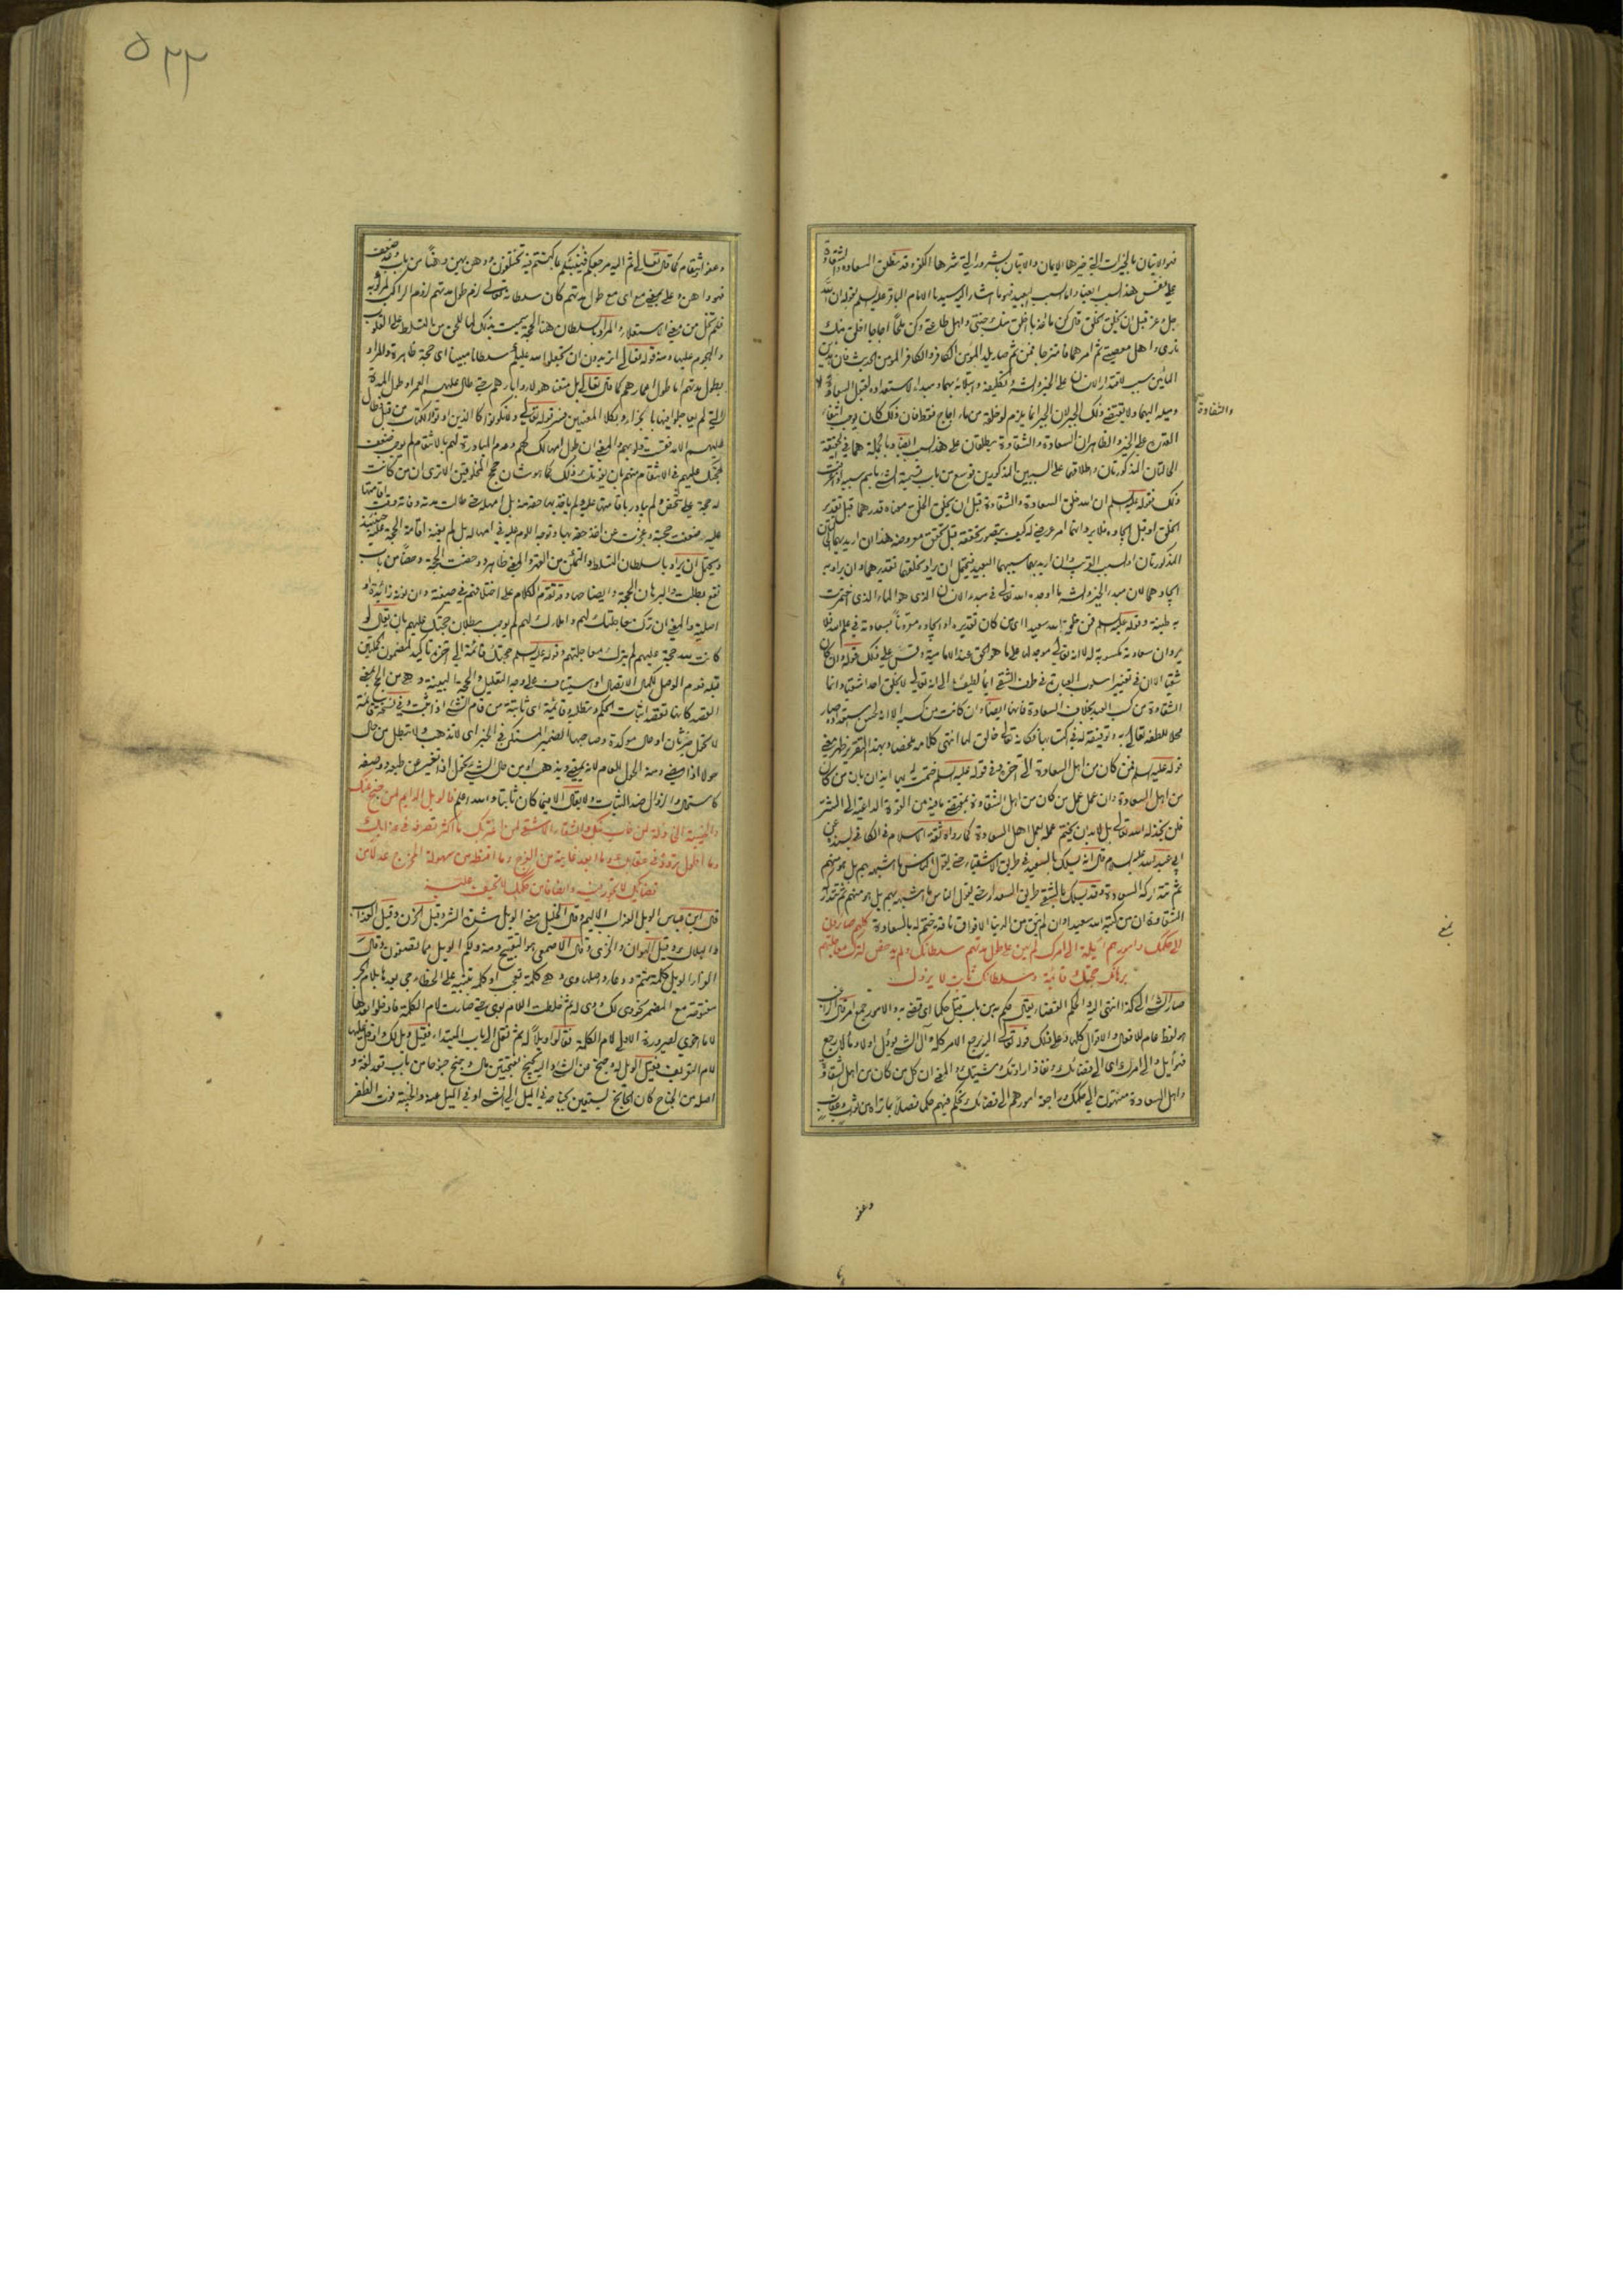 فهو الاتيان بالخيرات التي خيرها الايمان والاتيان بالشرور التي شرها الكفر وقد تطلق السعادة والشقاوة
على نفس هذا السبب ايضا واما السبب البعيد فهو ما اشار اليه سيدنا الامام الباقر عليه السلم بقوله ان الله
جل وعز قبل ان يخلق الخلق قال كن ماء عذبا اخلق منك جنتي واهل طاعتي وكن ملحا اجاجا اخلق منك
ناري واهل معصيتي ثم امرهما فامتزجا فمن ثم صار يلد المؤمن الكافر والكافر المؤمن الحديث فان هذين
المائين سبب لاقتدار الانسان على الخير والشر
وميله اليهما ولا يقتضي ذلك الجبر لان الجبر انما يلزم لو خلقه من ماء اجاج فقط فان ذلك كان يوجب انتفاء
والشقاوة
القدرة على الخير والظاهر ان السعادة والشقاوة يطلقان على هذا السبب ايضا وبالجملة هما في الحقيقة
الحالتان المذكورتان واطلاقهما على السببين المذكورين توسع من باب تسمية الشيء باسم سببه
ذلك فقوله عليه السلم ان الله خلق السعادة والشقاوة قبل ان يخلق الخلق معناه قدرهما قبل تقدير
الخلق او قبل ايجاده فلا يرد انهما امر عرضي له كيف يتصور تحققه قبل تحقق معروضه هذا ان اريد بهما الحالتان
المذكورتان او السبب القريب وان اريد بهما سببهما البعيد فيحتمل ان يراد بخلقهما تقديرهما وان يراد به
ايجادهما لان مبدأ الخير والشر ما اوجده الله تعالى في مبدء الانسان الذي هو الماء الذي اختمرت
به طينته وقوله عليه السلم فمن علمه الله سعيدا اي من كان تقديره او ايجاده مقرونا بسعادته في علم الله فلا
يرد ان سعادته مكسوبة له لا انه تعالى موجد لها على ما هو الحق عند الامامية وقس على ذلك قوله وان كان
شقيا الا ان في تغيير اسلوب العبارة في طرف الشقي ايماء لطيفا الى انه تعالى لا يخلق احدا شقيا وانما
الشقاوة من كسب العبد بخلاف السعادة فانها ايضا وان كانت من كسبه الا انه لحسن استعداده صار
محلا للطفه تعالى به وتوفيقه له في اكتسابها فكانه تعالى خالق لها انتهى كلامه ملخصا وبهذا التقرير ظهر معنى
قوله عليه السلم فمن كان من اهل السعادة الى آخره وفي قوله عليه السلم ختمت له بها ايذان بان من كان
من اهل السعادة وان عمل عمل من كان من اهل الشقاوة بمقتضى ما فيه من القوة الداعية الى الشر
فلن يخذله الله تعالى بل لا بد ان يختم عمله بعمل اهل السعادة كما رواه ثقة الاسلام في الكافي بسنده عن
ابي عبد الله عليه السلام قال انه يسلك بالسعيد في طريق الاشقياء حتى يقول الناس ما اشبهه بهم بل هو منهم
ثم تتداركه السعادة وقد يسلك بالشقي طريق السعداء حتى يقول الناس ما اشبهه بهم بل هو منهم ثم تتداركه
الشقاوة ان من كتبه الله سعيدا وان لم يبق من الدنيا الا فواق ناقة ختم له بالسعادة كلهم صايرون
الى حكمك وامورهم آئلة الى امرك لم يهن على طول مدتهم سلطانك ولم يدحض لترك معاجلتهم
برهانك حجتك قائمة وسلطانك ثابت لا يزول
صار الشيء الى كذا انتهى اليه والحكم القضاء يقال حكم
هو لفظ عام للافعال والاقوال كلها وعلى ذلك قوله تعالى اليه يرجع الامر كله وآل الشيء يؤل اولا ومآلا رجع
فهو آيل والى امرك اي الى قضائك ونفاذ ارادتك ومشيتك والمعنى ان كل من كان من اهل الشقاوة
واهل السعادة منتهون الى حكمك وراجعة امورهم الى قضائك
وعفو
٥٢٢
وعفو وانتقام كما قال تعالى ثم اليه مرجعكم فينبئكم بما كنتم فيه تختلفون ووهن يهن وهنا من باب وعد ضعف
فهو واهن وعلى بمعنى مع اي مع طول مدتهم كان سلطانه تعالى لزم طول مدتهم لزوم الراكب لمركوبه
فلم تخل من معنى الاستعلاء والمراد بالسلطان هنا الحجة سميت بذلك لما للحق من التسلط على القلوب
والهجوم عليها ومنه قوله تعالى اتريدون ان تجعلوا لله عليكم سلطانا مبينا اي حجة ظاهرة والمراد
بطول مدتهم اما طول اعمارهم كما قال تعالى بل متعنا هؤلاء وآباءهم حتى طال عليهم العمر او طول المدة
التي لم يعاجلوا فيها بالجزاء وبكلا المعنيين فسر قوله تعالى ولا تكونوا كالذين اوتوا الكتاب من قبل فطال
عليهم الامد فقست قلوبهم والمعنى ان طول امهالك لهم وعدم المبادرة اليهم بالانتقام لم يوجب ضعف
حجتك عليهم في الانتقام منهم بان يفوتك ذلك كما هو شان حجج المخلوقين الا ترى ان من كانت
له حجة على شخص ولم يبادر باقامتها عليه ولم ياخذ بها حقه منه بل امهله حتى طالت مدته وفاته وقت اقامتها
عليه ضعفت حجته وعجزت عن اخذ حقه بها وتوجه اللوم عليه في امهاله بل لم يغنه اقامة الحجة عليه حينئذ
ويحتمل ان يراد بالسلطان التسلط والتمكن من القهر والمعنى ظاهر ودحضت الحجة دحضا من باب
نفع بطلت والبرهان الحجة وايضاحها وقد تقدم الكلام على اختلافهم في صيغته وان نونه زائدة او
اصلية والمعنى ان ترك معاجلتك لهم وامهالك لهم لم يوجب بطلان حجتك عليهم بان يقال لو
كانت لله حجة عليهم لم يترك معاجلتهم وقوله عليه السلم حجتك قائمة الى آخره تاكيد لمضمون الجملتين
قبله فقدم الوصل لكمال الاتصال او استيناف على وجه التعليل والحجة البينة وهي من الحج بمعنى
القصد كانها تقصد اثبات الحكم وتطلبه وقائمة اي ثابتة من قام الشيء اذا ثبت
لا تحول خبر ثان او حال مؤكدة وصاحبها الضمير المستكن في الخبر اي لا تذهب ولا تبطل من حال
حولا اذا مضى ومنه الحول للعام لانه يمضي ويذهب او من حال الشيء يحول اذا تغير عن طبعه ووصفه
كاستحال والزوال ضد الثبات ولا يقال الا فيما كان ثابتا والله اعلم فالويل الدايم لمن جنح عنك
والخيبة الخاذلة لمن خاب منك والشقاء الاشقى لمن اغتر بك ما اكثر تصرفه في عذابك
وما اطول تردده في عقابك وما ابعد غايته من الفرج وما اقنطه من سهولة المخرج عدلا من
قضائك لا تجور فيه وانصافا من حكمك لا تحيف عليه
قال ابن عباس الويل العذاب الاليم وقال الخليل معنى الويل شدة الشر وقيل الحزن وقيل العذاب
والهلاك وقيل الهوان والخزي وقال الاصمعي هو التقبيح ومنه ولكم الويل مما تصفون وقال
الفراء الويل كلمة شتم ودعاء واصلها وي وهي كلمة تعجب او كلمة تنبيه على الخطاء وجيء بعدها بلام الجر
مفتوحة مع المضمر نحو وي لك ووي له ثم خلطت اللام بوي حتى صارت لام الكلمة فادخلوا بعدها
لاما اخرى لصيرورة الاولى لام الكلمة فقالوا ويلا له ثم نقل الى باب المبتداء فقيل ويل لك وادخل عليها
لام التعريف فقيل الويل له وجنح عن الشيء واليه يجنح بفتحتين مال وجنح جنوحا من باب قعد لغة و
اصله من الجناح كان الجانح يستعين بجناحه في الميل الى الشيء او في الميل عنه والخيبة فوت الظفر